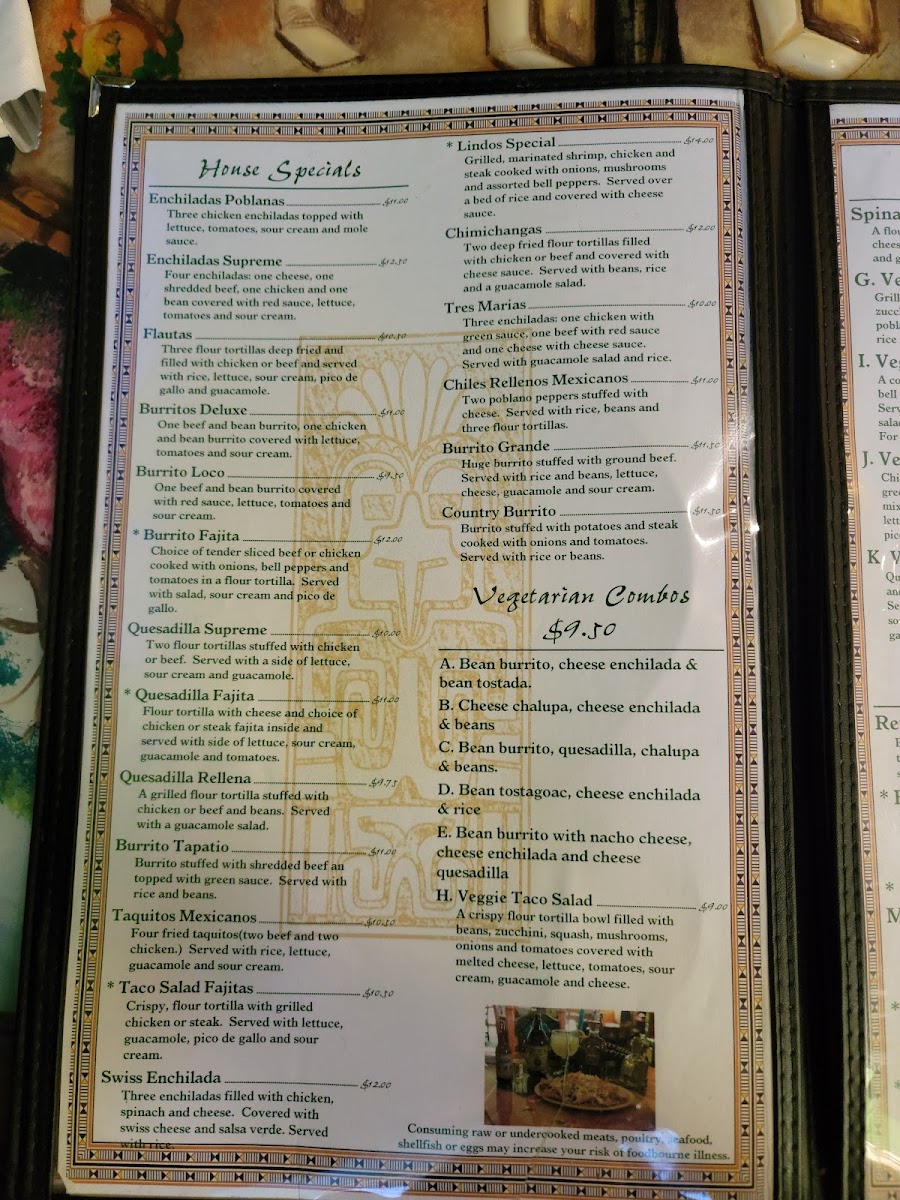 House Specials
Enchiladas Poblanas $11.00
Three chicken enchiladas topped with
lettuce, tomatoes, sour cream and mole
sauce.
Enchiladas Supreme $12.50
Four enchiladas: one cheese, one
shredded beef, one chicken and one
bean covered with red sauce, lettuce,
tomatoes and sour cream.
Flautas $10.50
Three flour tortillas deep fried and
filled with chicken or beef and served
with rice, lettuce, sour cream, pico de
gallo and guacamole.
Burritos Deluxe $11.00
One beef and bean burrito, one chicken
and bean burrito covered with lettuce,
tomatoes and sour cream.
Burrito Loco $9.50
One beef and bean burrito covered
with red sauce, lettuce, tomatoes and
sour cream.
* Burrito Fajita $12.00
Choice of tender sliced beef or chicken
cooked with onions, bell peppers and
tomatoes in a flour tortilla. Served
with salad, sour cream and pico de
gallo.
Quesadilla Supreme $10.00
Two flour tortillas stuffed with chicken
or beef. Served with a side of lettuce,
sour cream and guacamole.
* Quesadilla Fajita $11.00
Flour tortilla with cheese and choice of
chicken or steak fajita inside and
served with side of lettuce, sour cream,
guacamole and tomatoes.
Quesadilla Rellena $9.75
A grilled flour tortilla stuffed with
chicken or beef and beans. Served
with a guacamole salad.
Burrito Tapatio $11.00
Burrito stuffed with shredded beef an
topped with green sauce. Served with
rice and beans.
Taquitos Mexicanos $10.50
Four fried taquitos(two beef and two
chicken.) Served with rice, lettuce,
guacamole and sour cream.
* Taco Salad Fajitas $10.50
Crispy, flour tortilla with grilled
chicken or steak. Served with lettuce,
guacamole, pico de gallo and sour
cream.
Swiss Enchilada $12.00
Three enchiladas filled with chicken,
spinach and cheese. Covered with
swiss cheese and salsa verde. Served
with rice.
* Lindos Special $14.00
Grilled, marinated shrimp, chicken and
steak cooked with onions, mushrooms
and assorted bell peppers. Served over
a bed of rice and covered with cheese
sauce.
Chimichangas $12.00
Two deep fried flour tortillas filled
with chicken or beef and covered with
cheese sauce. Served with beans, rice
and a guacamole salad.
Tres Marias $10.00
Three enchiladas: one chicken with
green sauce, one beef with red sauce
and one cheese with cheese sauce.
Served with guacamole salad and rice.
Chiles Rellenos Mexicanos $11.00
Two poblano peppers stuffed with
cheese. Served with rice, beans and
three flour tortillas.
Burrito Grande $11.50
Huge burrito stuffed with ground beef.
Served with rice and beans, lettuce,
cheese, guacamole and sour cream.
Country Burrito $11.50
Burrito stuffed with potatoes and steak
cooked with onions and tomatoes.
Served with rice or beans.
Vegetarian Combos
$9.50
A. Bean burrito, cheese enchilada &
bean tostada.
B. Cheese chalupa, cheese enchilada
& beans
C. Bean burrito, quesadilla, chalupa
& beans.
D. Bean tostagoac, cheese enchilada
& rice
E. Bean burrito with nacho cheese,
cheese enchilada and cheese
quesadilla
H. Veggie Taco Salad $9.00
A crispy flour tortilla bowl filled with
beans, zucchini, squash, mushrooms,
onions and tomatoes covered with
melted cheese, lettuce, tomatoes, sour
cream, guacamole and cheese.
Consuming raw or undercooked meats, poultry, seafood,
shellfish or eggs may increase your risk of foodbourne illness.